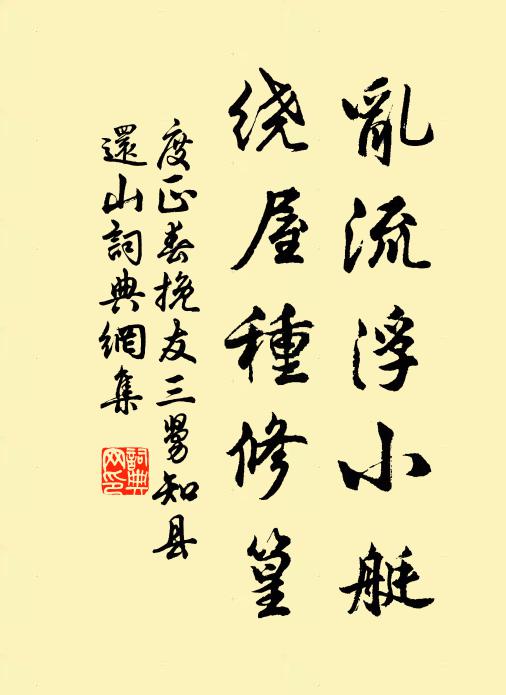 亂流浮小艇
绕屋種修篁
度正春挽友三舅知县
還山詞典網集
詞典
网印